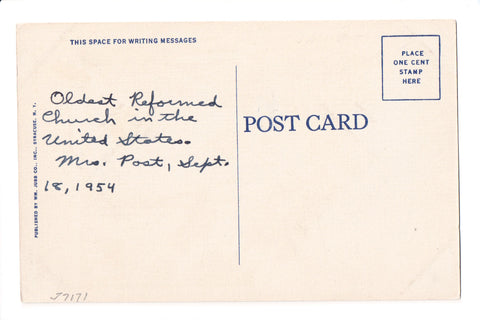 THIS SPACE FOR WRITING MESSAGES
PLACE
ONE CENT
STAMP
HERE
Oldest Reformed
Church in the
United States.
Mrs. Post, Sept.
18, 1954
POST CARD
PUBLISHED BY WM. JUBB CO., INC., SYRACUSE, N. Y.
J7171